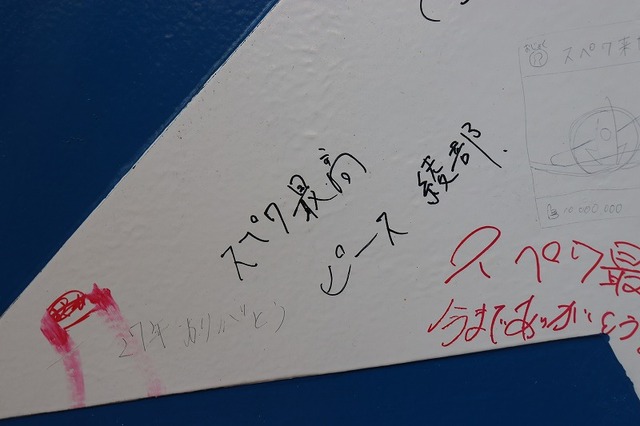 スペワ最高
ピース 綾部.
27年ありがとう
スペワ最
今までありがとう
スペワ来
10,000,000